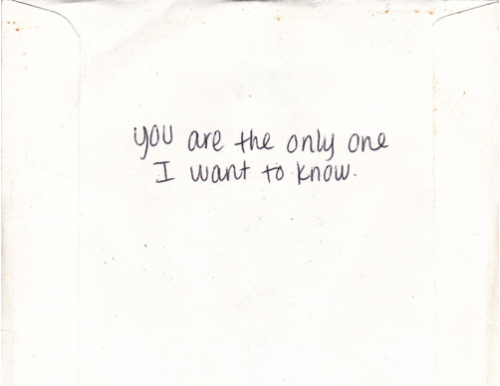 you are the only one
I want to know.